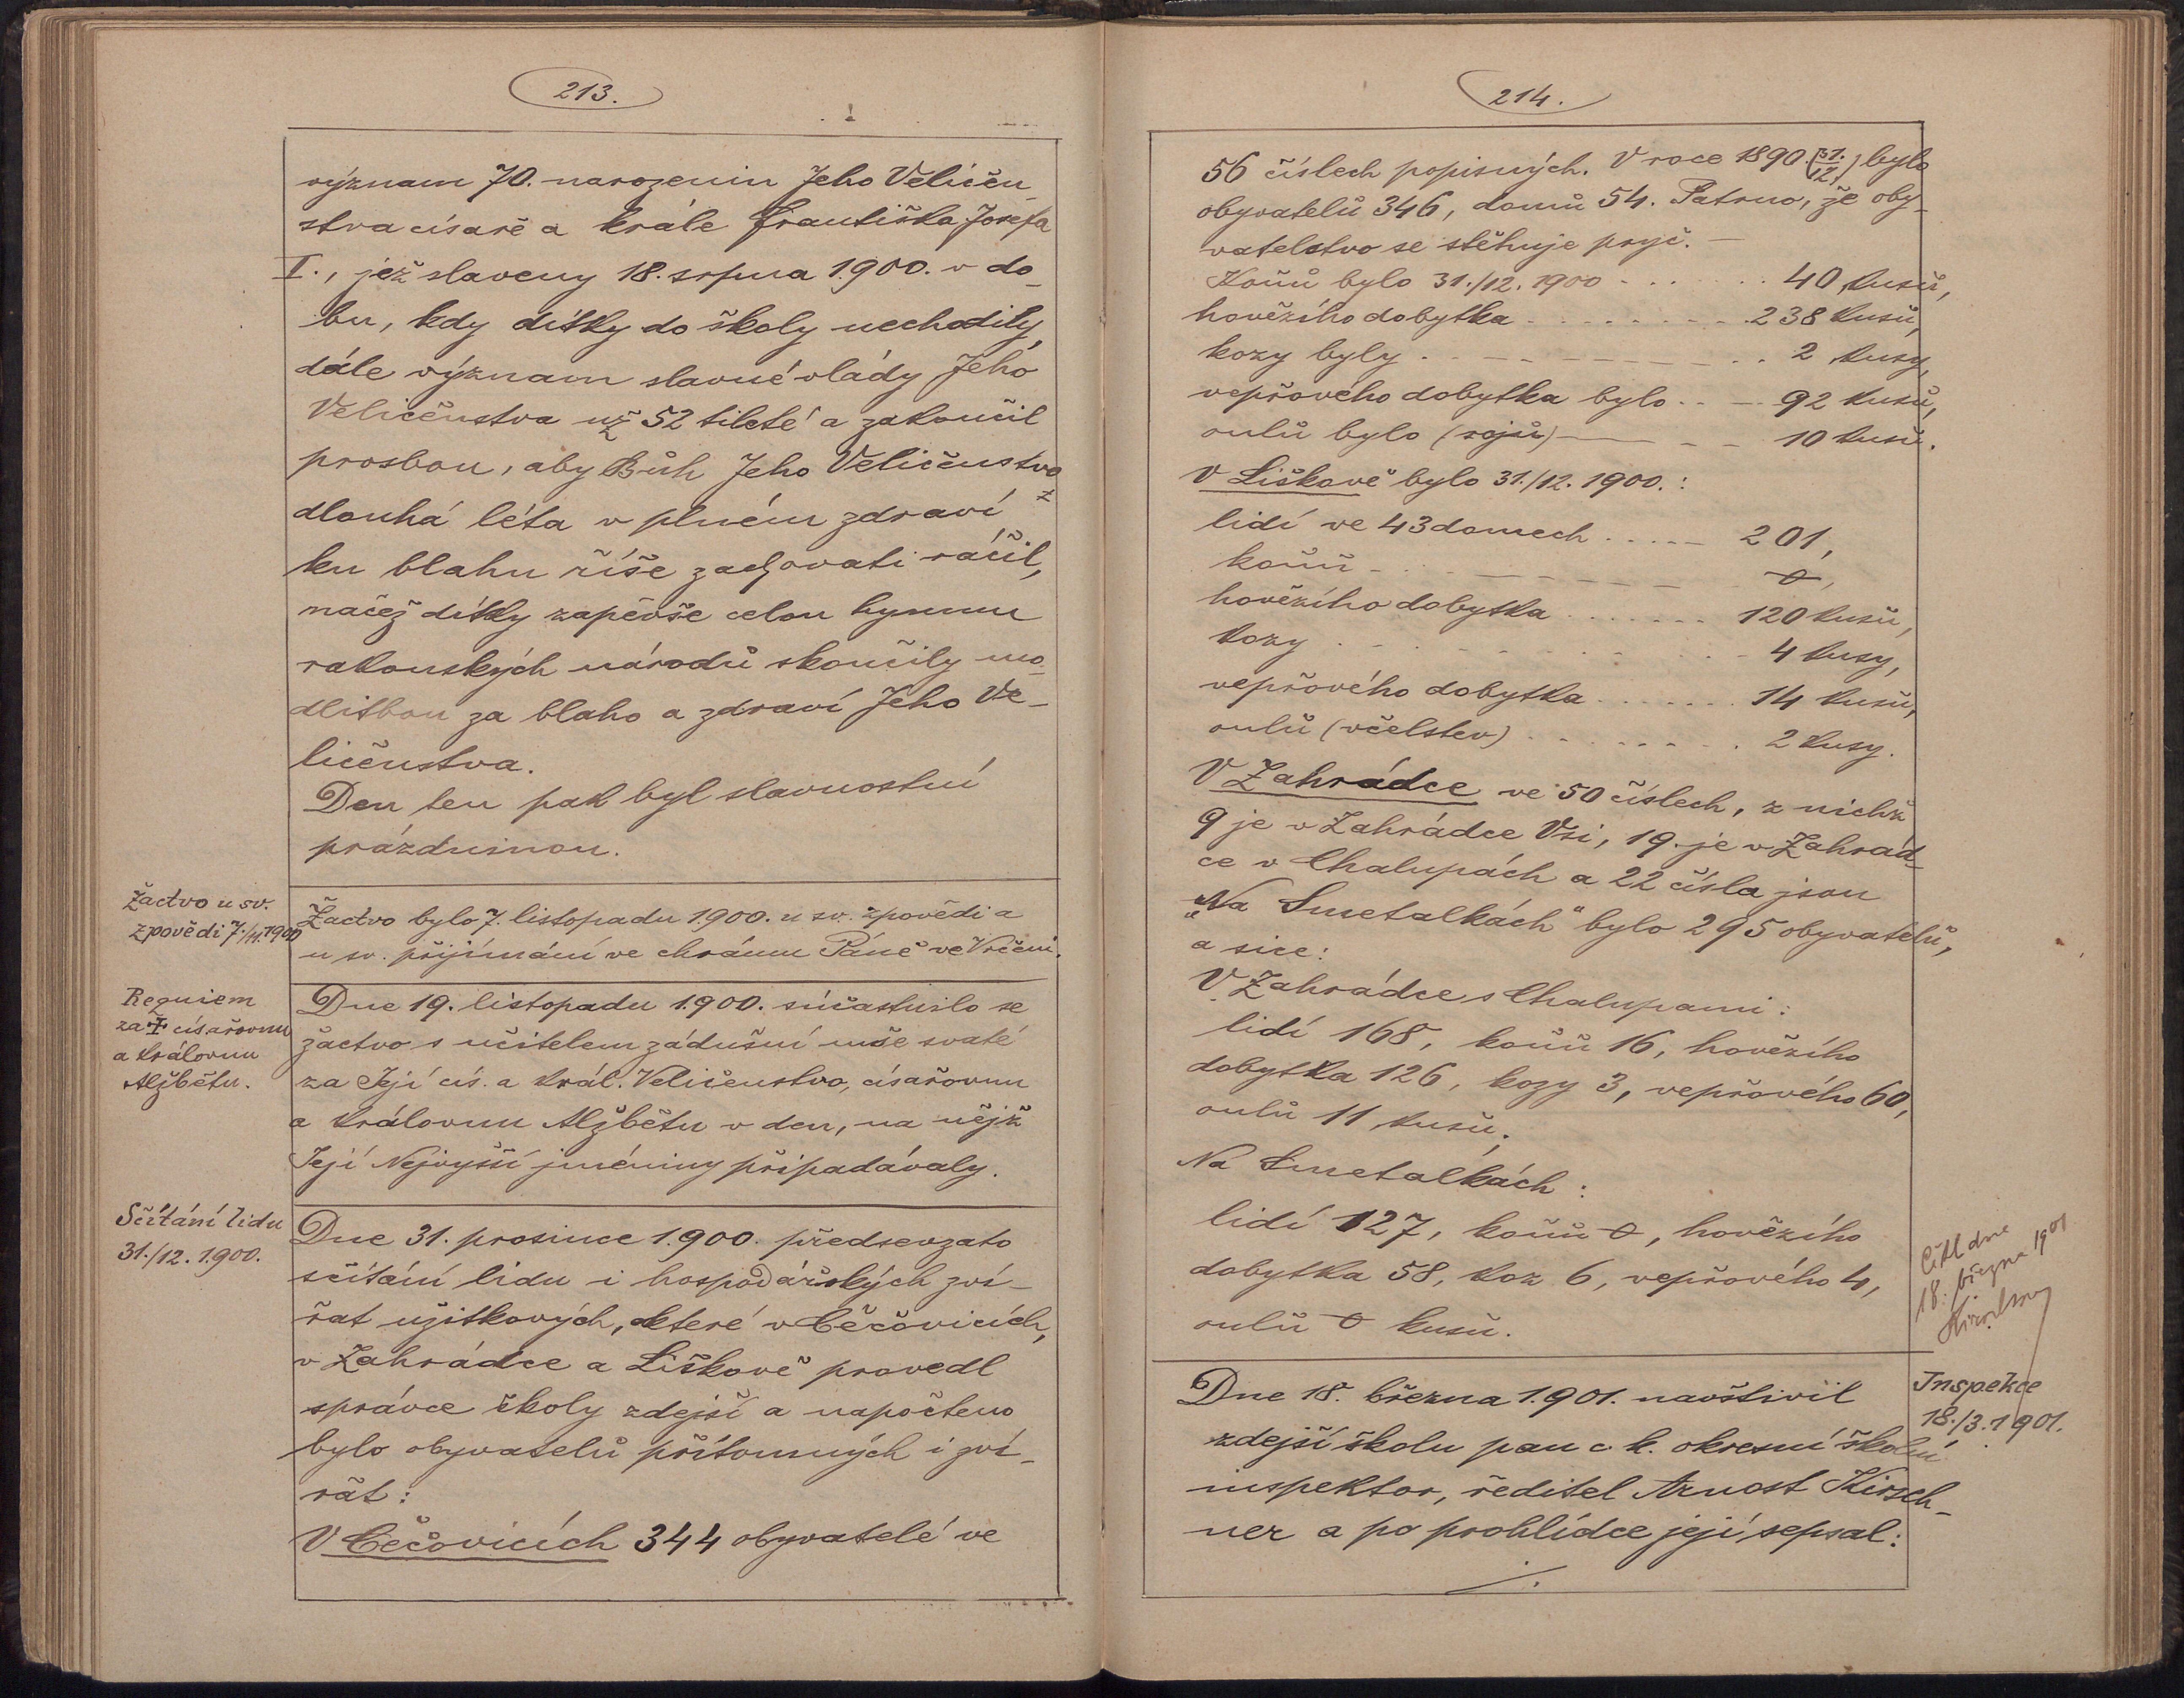 213.
význam 70. narozenin Jeho Veličen-
stva císaře a krále Františka Josefa
I., jež slaveny 18. srpna 1.900. v do-
bu, kdy dítky do školy nechodily,
dále význam slavné vlády Jeho
Veličenstva už 52 tileté a zakončil
prosbou, aby Bůh Jeho Veličenstvo
dlouhá léta v plném zdraví
ku blahu říše zachovati ráčil,
načež dítky zapěvše celou hymnu
rakouských národů skončily mo-
dlitbou za blaho a zdraví Jeho Ve-
ličenstva.
Den ten pak byl slavnostní
prázdninou.
Žactvo u sv.
zpovědi 7./11.1900
Žactvo bylo 7. listopadu 1.900. u sv. zpovědi a
u sv. přijímání ve chrámu Páně ve Vrčeni.
Requiem
za † císařovnu
a královnu
Alžbětu.
Dne 19. listopadu 1.900. súčastnilo se
žactvo s učitelem zádušní mše svaté
za Její cís. a král. Veličenstvo, císařovnu
a královnu Alžbětu v den, na nějž
Její Nejvyšší jméniny připadávaly.
Sčítání lidu
31./12. 1.900.
Dne 31. prosince 1.900. předsevzato
sčítání lidu i hospodářských zví-
řat užitkových, které v Čečovicích,
v Zahrádce a Liškově provedl
správce školy zdejší a napočteno
bylo obyvatelů přítomných i zví-
řat:
V Čečovicích 344 obyvatelé ve
214.
56 číslech popisných. V roce 1890. (31./12.) bylo
obyvatelů 346, domů 54. Patrno, že oby-
vatelstvo se stěhuje pryč. —
Koňů bylo 31./12. 1900 . . . . . . 40 kusů,
hovězího dobytka . . . . . . . . 238 kusů,
kozy byly . . . . . . . . 2 kusy,
vepřového dobytka bylo . . — 92 kusů,
oulů bylo (rojů) — — — 10 kusů.
V Liškově bylo 31./12. 1900. :
lidí ve 43 domech . . . . . 201,
koňů . . . . . . . . 0,
hovězího dobytka . . . . . . . 120 kusů,
kozy . . . . . . . . 4 kusy,
vepřového dobytka . . . . . . . 14 kusů,
oulů (včelstev) . . . . . . . . 2 kusy.
V Zahrádce ve 50 číslech, z nichž
9 je v Zahrádce Vsi, 19. je v Zahrád-
ce v Chalupách a 22 čísla jsou
„Na Smetalkách" bylo 295 obyvatelů,
a sice:
V Zahrádce s Chalupami :
lidí 168, koňů 16, hovězího
dobytka 126, kozy 3, vepřového 60,
oulů 11 kusů.
Na Smetalkách :
lidí 127, koňů 0, hovězího
dobytka 58, koz 6, vepřového 4,
oulů 0 kusů.
Četl dne
18. března 1901
Kirschner
Inspekce
18./3. 1901.
Dne 18. března 1.901. navštívil
zdejší školu pan c. k. okresní školní
inspektor, ředitel Arnošt Kirsch-
ner a po prohlídce její sepsal:
./.